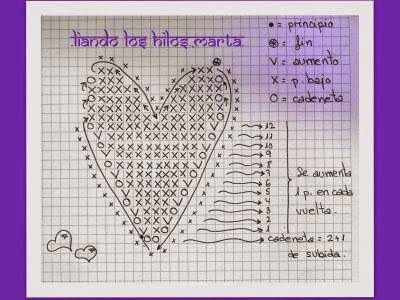 liando los hilos.marta.
• = principio
⊛ = fin
V = aumento
X = p. bajo
O = cadeneta
12
11
10
9
8
7
6
5
4
3
2
1
Se aumenta
1 p. en cada
vuelta.
cadeneta = 2+1
de subida.